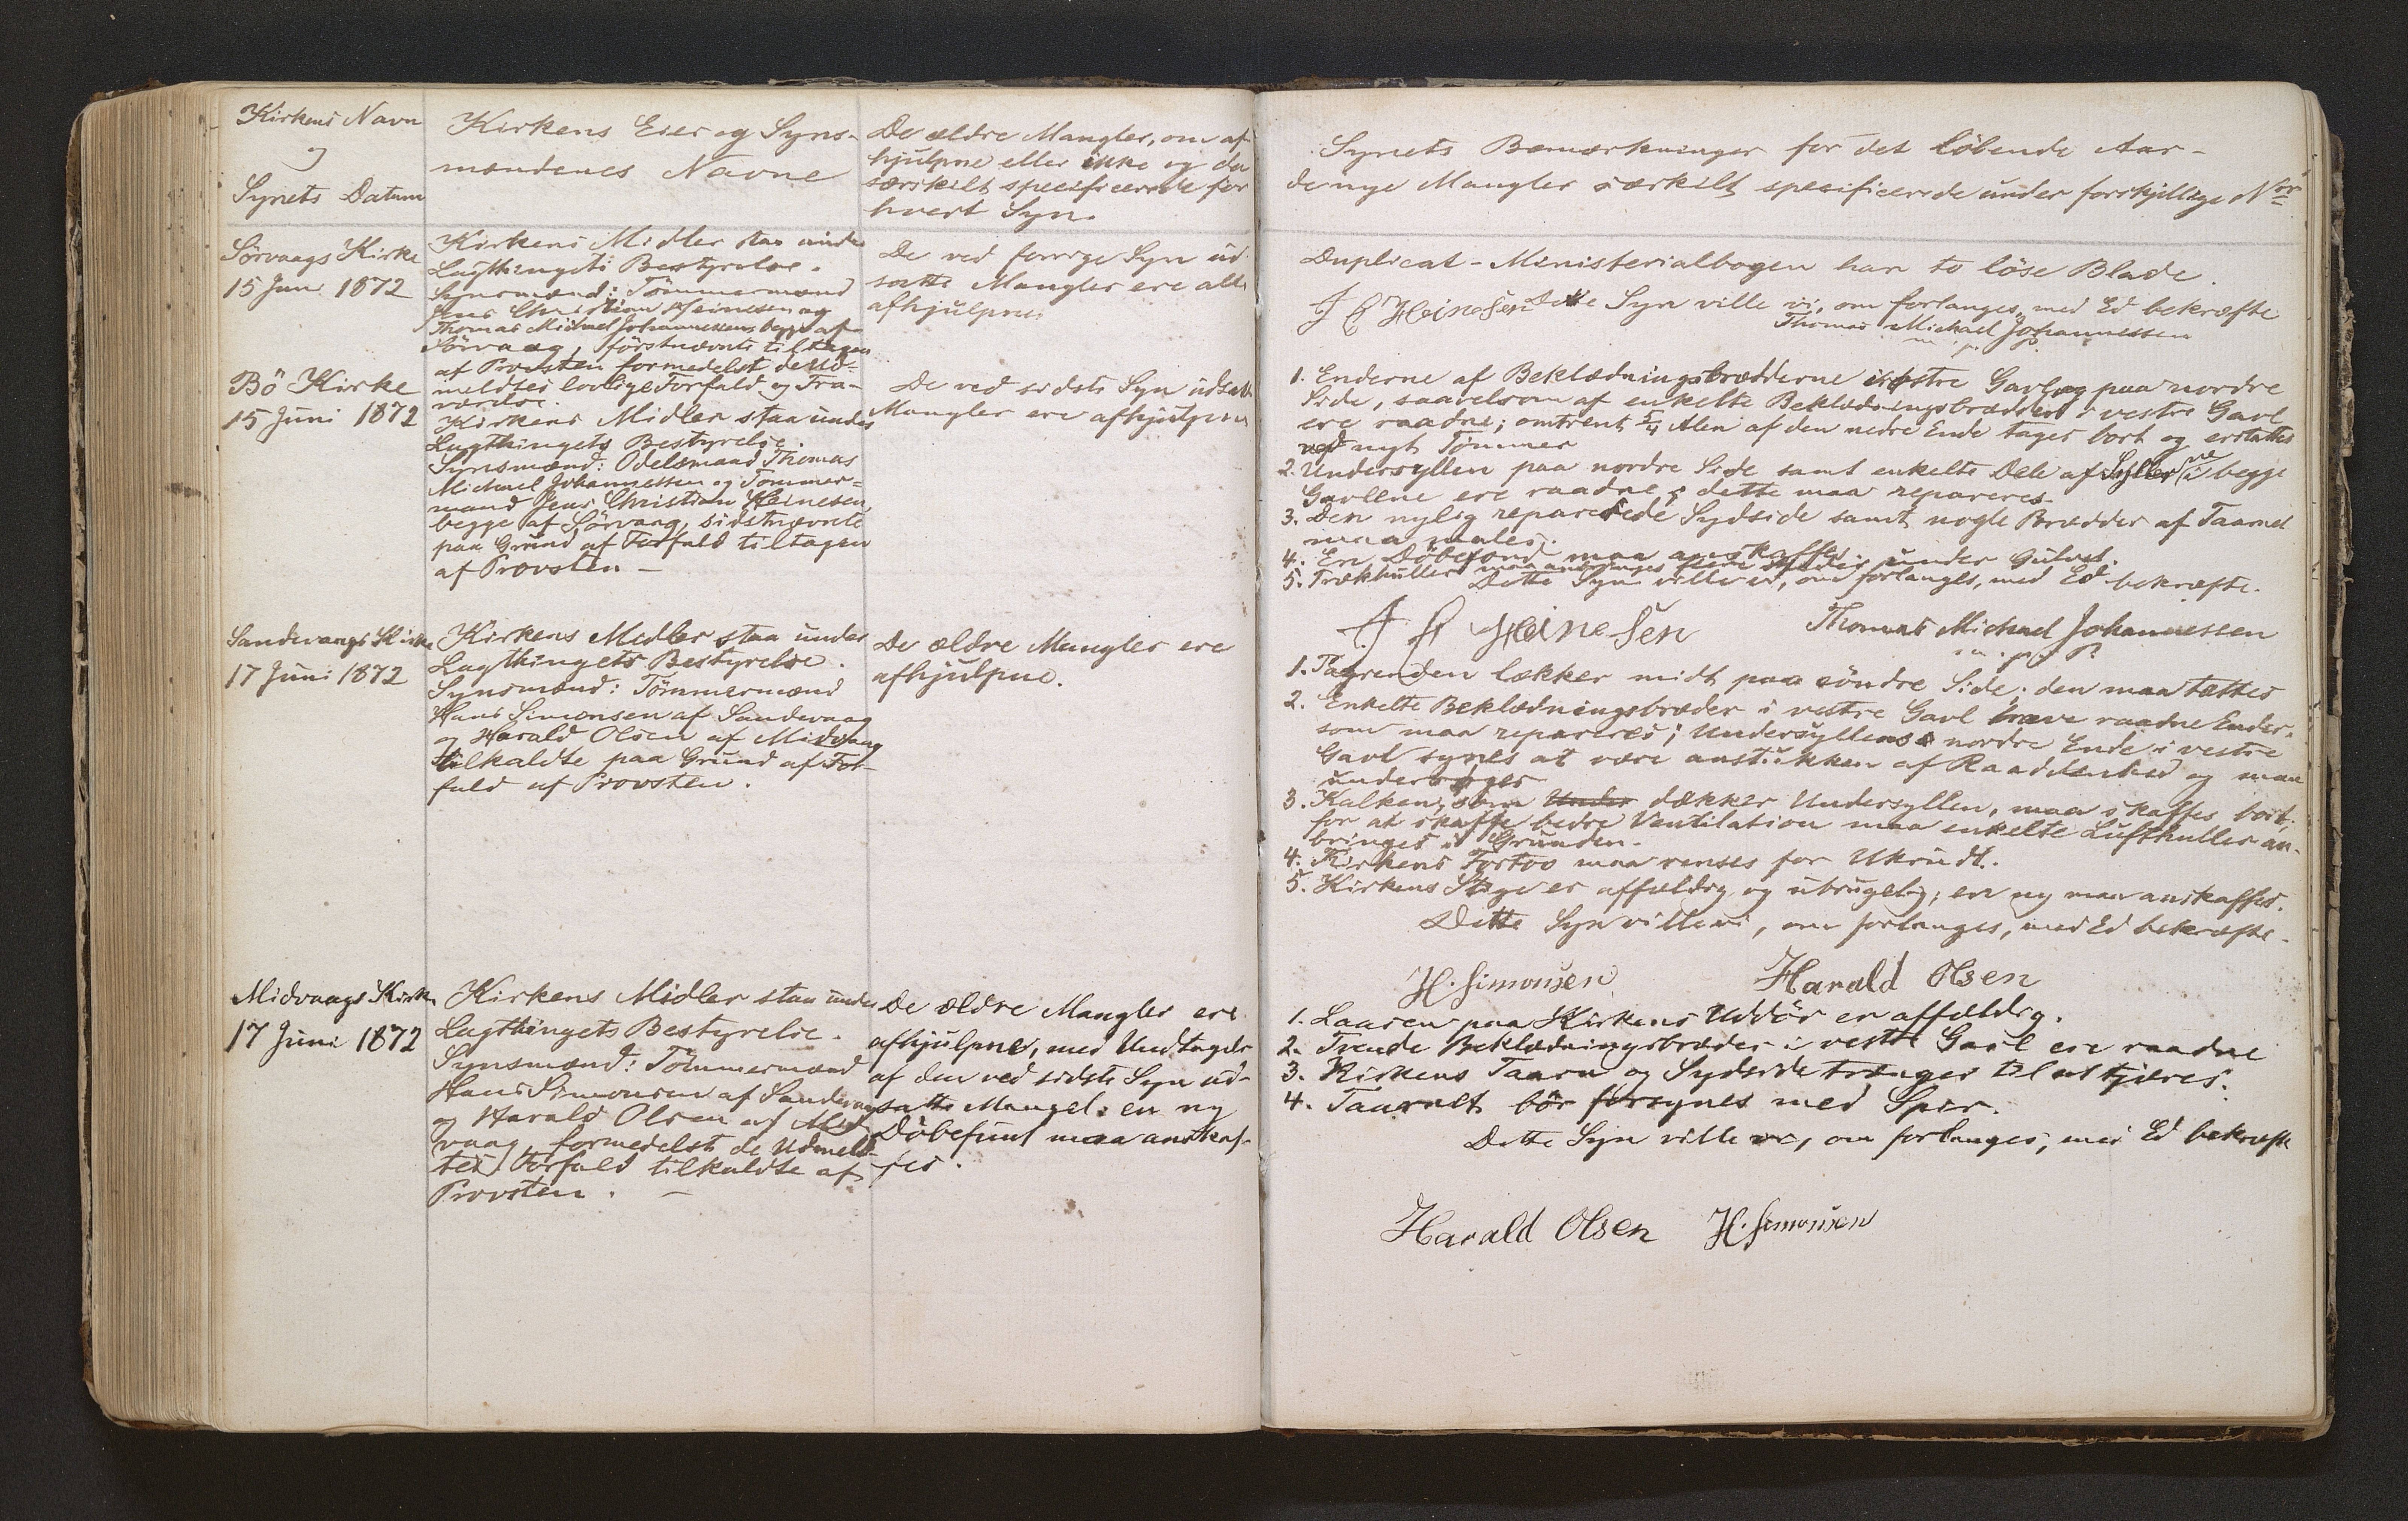 Kirkens Navn
og
Synets Datum
Kirkens Eier og Syns-
mændenes Navne
De ældre Mangler, om af-
hjulpne eller ikke og da
særskilt specificerede for
hvert Syn.
Sörvaags Kirke
15 Juni 1872
Kirkens Midler staa under
Lagthingets Bestyrelse.
Synsmænd: Tömmermænd
Jens Christian Heinesen og
Thomas Michael Johannessen begge af
Sörvaag, förstnævnte tiltagen
af Provsten formedelst de Ud-
meldtes lovlige Forfald og Fra-
værelse.
De ved forrige Syn ud-
satte Mangler ere alle
afhjulpne
Bö Kirke
15 Juni 1872
Kirkens Midler staa under
Lagthingets Bestyrelse.
Synsmænd: Odelsmand Thomas
Michael Johannessen og Tömmer=
mand Jens Christian Heinesen,
begge af Sörvaag, sidstnævnte
paa Grund af Forfald tiltagen
af Provsten —
De ved sidste Syn udsatte
Mangler ere afhjulpne
Sandevaags Kirke
17 Juni 1872
Kirkens Midler staa under
Lagthingets Bestyrelse.
Synsmænd: Tömmermænd
Hans Simonsen af Sandevaag
og Harald Olsen af Midvaag
tilkaldte paa Grund af For-
fald af Provsten.
De ældre Mangler ere
afhjulpne.
Midvaags Kirke
17 Juni 1872
Kirkens Midler staa under
Lagthingets Bestyrelse.
Synsmænd: Tömmermænd
Hans Simonsen af Sandevaag
og Harald Olsen af Mid-
vaag, formedelst de Udmeld-
tes Forfald tilkaldte af
Provsten. —
De ældre Mangler ere
afhjulpne, med Undtagelse
af den ved sidste Syn ud-
satte Mangel: en ny
Döbefunt maa anskaf-
fes.
Synets Bemærkninger for det löbende Aar-
de nye Mangler særkilt specificerede under forskjellige Nor
Duplicat-Ministerialbogen har to löse Blade.
J C Heinesen Dette Syn ville vi, om forlanges, med Ed bekræfte
Thomas Michael Johannessen
m. p. P.
1. Enderne af Beklædningsbrædderne i östre Gavl og paa nordre
Side, saavelsom af enkelte Beklædningsbrædder i vestre Gavl
ere raadne; omtrent 5/4 Alen af den nedre Ende tages bort og erstattes
ved nyt Tömmer
2. Undersyllen paa nordre Side samt enkelte Dele af Syllerne i begge
Gavlene ere raadne; dette maa repareres.
3. Den nylig reparerede Sydside samt nogle Brædder af Taarnet
maa males.
4. En Döbefond maa anskaffes.
5. Trækhuller maa anbringes flere Steder under Gulvet.
Dette Syn ville vi, om forlanges, med Ed bekræfte.
J C Heinesen
Thomas Michael Johannessen
m. p. P.
1. Tagrenden lækker midt paa söndre Side; den maa tættes
2. Enkelte Beklædningsbræder i vestre Gavl have raadne Ender,
som maa repareres; Undersyllens nordre Ende i vestre
Gavl synes at være anstukken af Raaddenhed og maa
undersöges
3. Kalken, som Under dækker Undersyllen, maa skaffes bort;
for at skaffe bedre Ventilation maa enkelte Lufthuller an-
bringes i Grunden.
4. Kirkens Fortov maa renses for Ukrudt.
5. Kirkens Stige er affældig og ubrugelig; en ny maa anskaffes.
Dette Syn ville vi, om forlanges, med Ed bekræfte.
H. Simonsen
Harald Olsen
1. Laasen paa Kirkens Uddör er affældig.
2. Trende Beklædningsbræder i vestre Gavl ere raadne
3. Kirkens Taarn og Sydside trænger til at tjæres.
4. Taarnet bör forsynes med Spir.
Dette Syn ville vi, om forlanges, med Ed bekræfte
Harald Olsen H. Simonsen